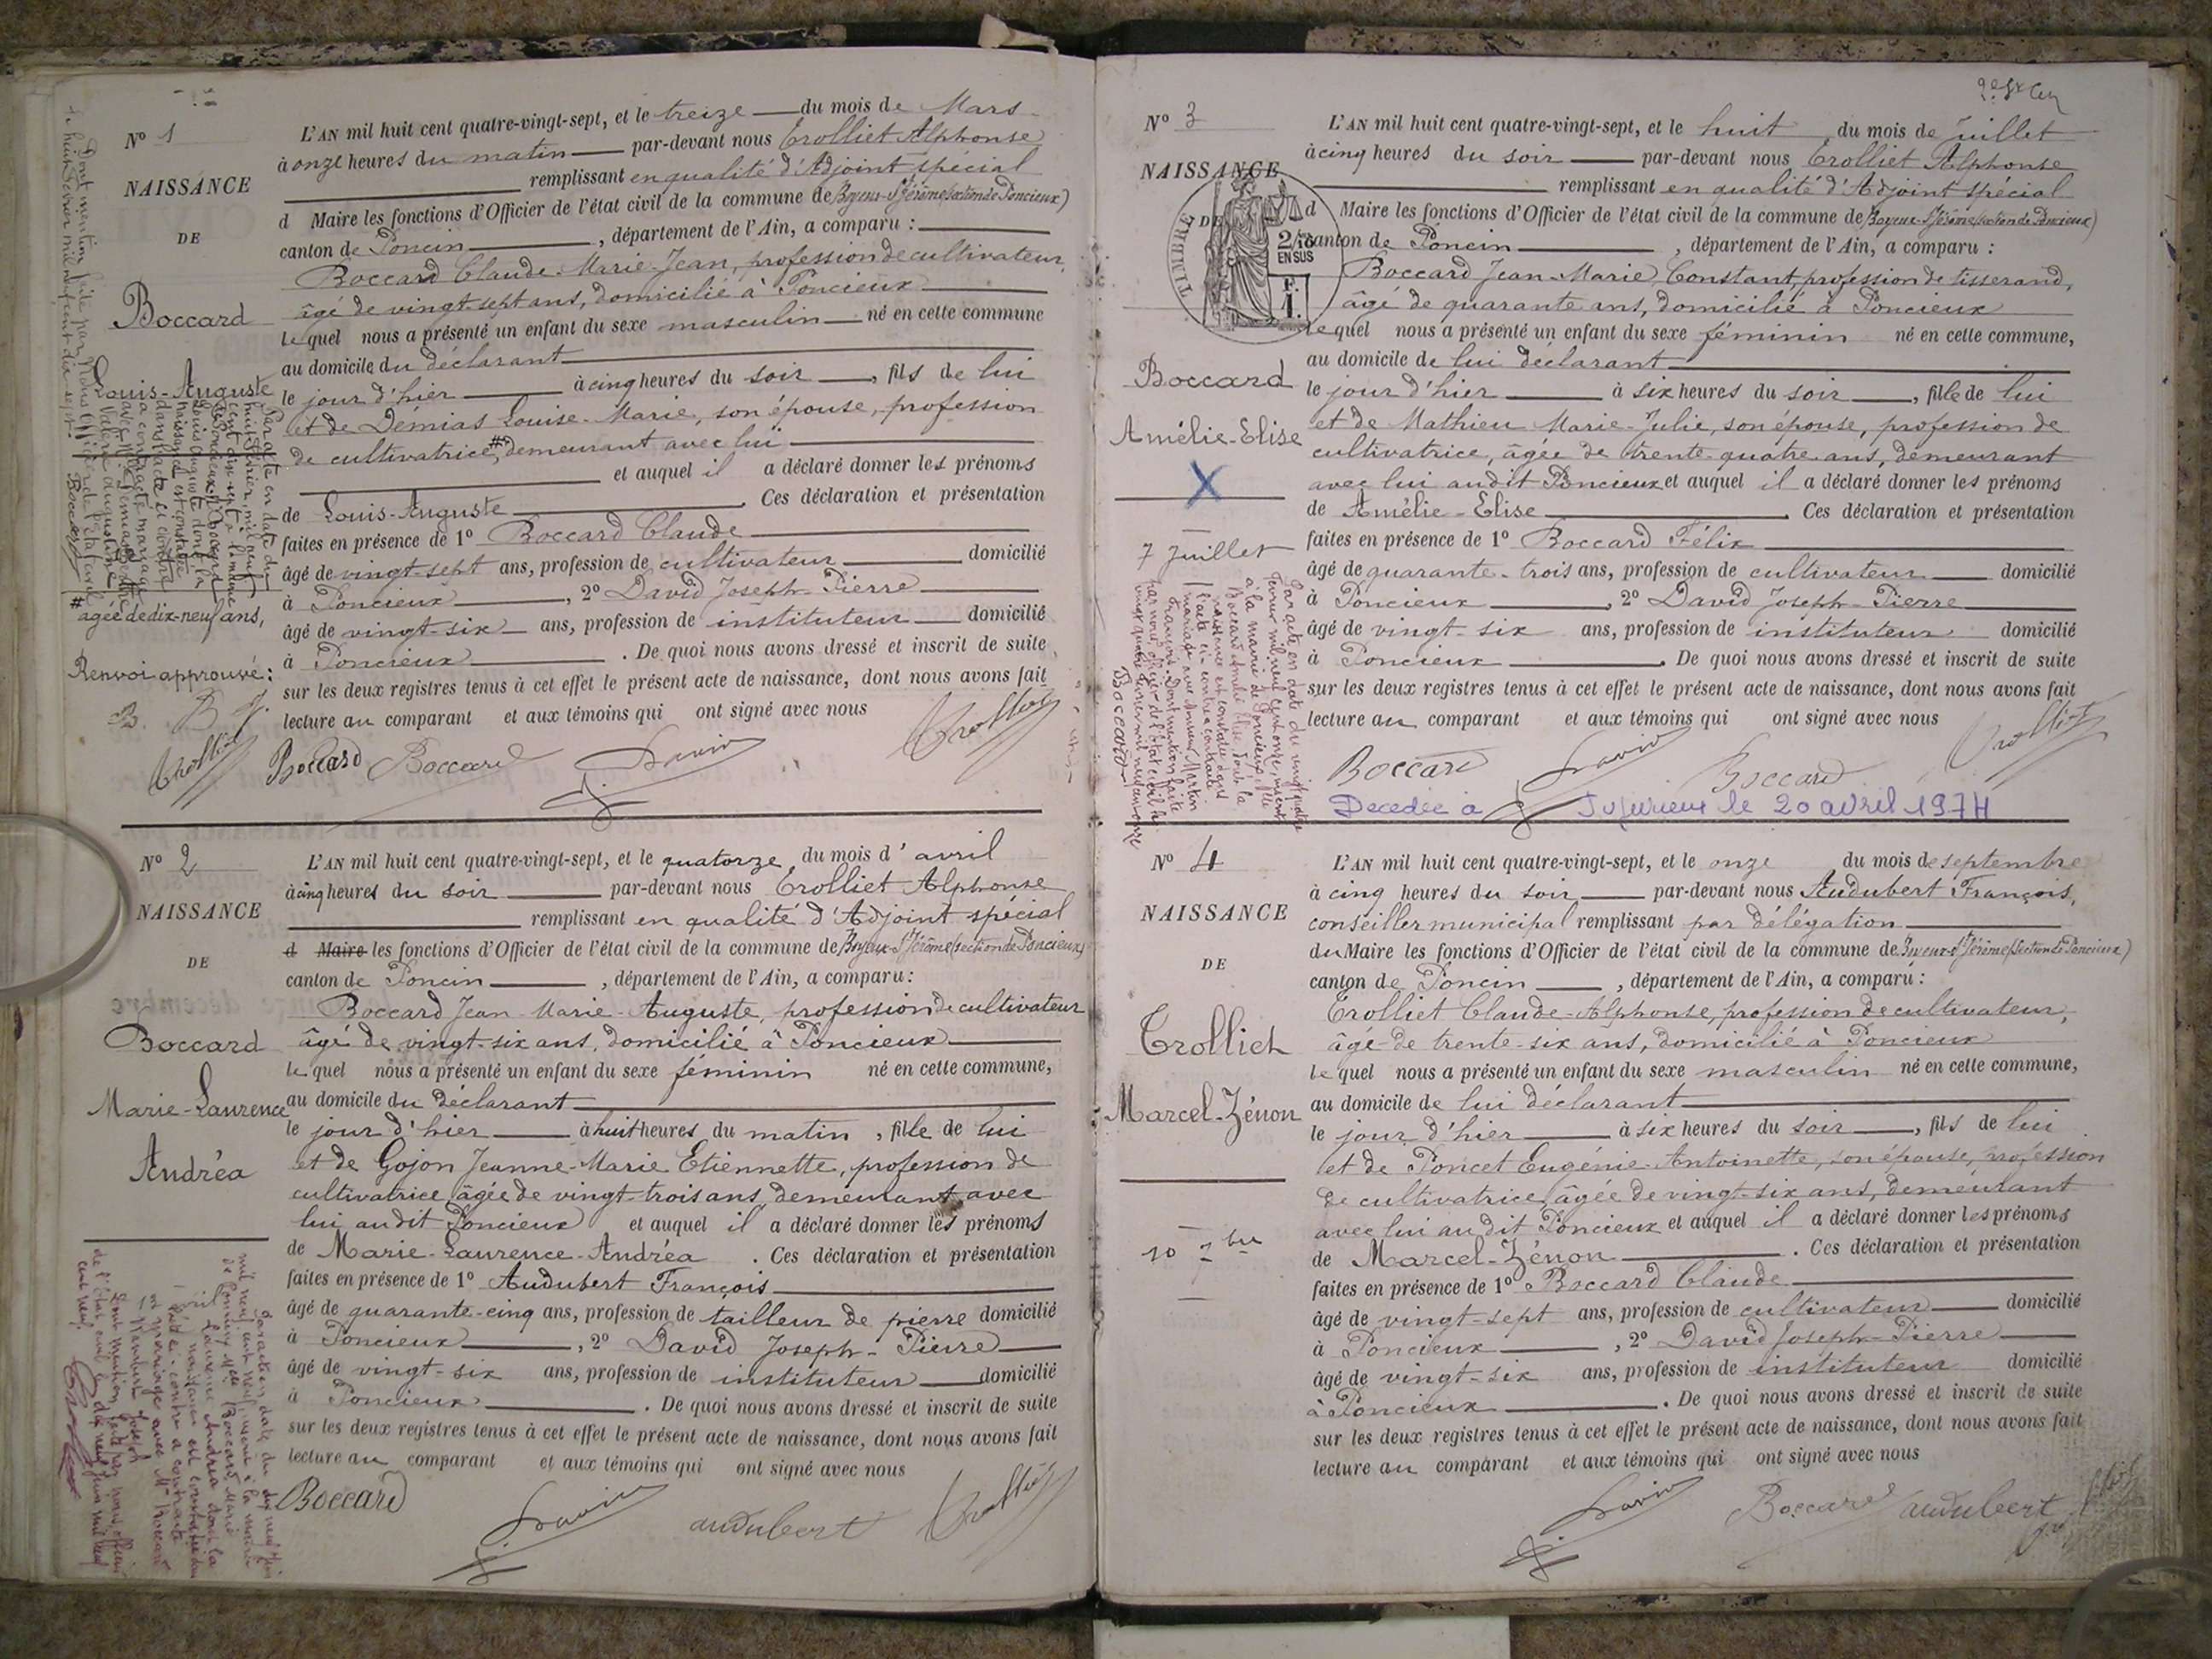 Nº 1
NAISSANCE
DE
Boccard
Louis-Auguste
# agée de dix-neuf ans,
Renvoi approuvé :
B. B J.
Trolliet
L'AN mil huit cent quatre-vingt-sept, et le treize du mois de Mars
à onze heures du matin par-devant nous Trolliet Alphonse
remplissant en qualité d'Adjoint spécial
d Maire les fonctions d'Officier de l'état civil de la commune de Boyeux-St Jérôme (section de Poncieux)
canton de Poncin, département de l'Ain, a comparu :
Boccard Claude-Marie-Jean, profession de cultivateur,
âgé de vingt-sept ans, domicilié à Poncieux
Lequel nous a présenté un enfant du sexe masculin né en cette commune
au domicile du déclarant
le jour d'hier à cinq heures du soir, fils de lui
et de Démias Louise-Marie, son épouse, profession
de cultivatrice,# demeurant avec lui
et auquel il a déclaré donner les prénoms
de Louis-Auguste. Ces déclaration et présentation
faites en présence de 1º Boccard Claude
âgé de vingt-sept ans, profession de cultivateur domicilié
à Poncieux, 2º David Joseph-Pierre
âgé de vingt-six ans, profession de instituteur domicilié
à Poncieux. De quoi nous avons dressé et inscrit de suite
sur les deux registres tenus à cet effet le présent acte de naissance, dont nous avons fait
lecture au comparant et aux témoins qui ont signé avec nous
Boccard Boccard David Trolliet
Nº 2
NAISSANCE
DE
Boccard
Marie-Laurence
Andréa
L'AN mil huit cent quatre-vingt-sept, et le quatorze du mois d'avril
à cinq heures du soir par-devant nous Trolliet Alphonse
remplissant en qualité d'Adjoint spécial
d Maire les fonctions d'Officier de l'état civil de la commune de Boyeux-St Jérôme (section de Poncieux)
canton de Poncin, département de l'Ain, a comparu :
Boccard Jean-Marie-Auguste, profession de cultivateur
âgé de vingt-six ans, domicilié à Poncieux
Lequel nous a présenté un enfant du sexe féminin né en cette commune,
au domicile du déclarant
le jour d'hier à huit heures du matin, fille de lui
et de Gojon Jeanne-Marie Etiennette, profession de
cultivatrice, âgée de vingt-trois ans, demeurant avec
lui audit Poncieux et auquel il a déclaré donner les prénoms
de Marie-Laurence-Andréa. Ces déclaration et présentation
faites en présence de 1º Audubert François
âgé de quarante-cinq ans, profession de tailleur de pierre domicilié
à Poncieux, 2º David Joseph-Pierre
âgé de vingt-six ans, profession de instituteur domicilié
à Poncieux. De quoi nous avons dressé et inscrit de suite
sur les deux registres tenus à cet effet le présent acte de naissance, dont nous avons fait
lecture au comparant et aux témoins qui ont signé avec nous
Boccard David audubert Trolliet
Nº 3
NAISSANCE
DE
TIMBRE
2/10
EN SUS
F.
1.
Boccard
Amélie-Elise
X
7 Juillet
L'AN mil huit cent quatre-vingt-sept, et le huit du mois de juillet
à cinq heures du soir par-devant nous Trolliet Alphonse
remplissant en qualité d'Adjoint spécial
d Maire les fonctions d'Officier de l'état civil de la commune de Boyeux-St Jérôme (section de Poncieux)
canton de Poncin, département de l'Ain, a comparu :
Boccard Jean-Marie Constant, profession de tisserand,
âgé de quarante ans, domicilié à Poncieux
Lequel nous a présenté un enfant du sexe féminin né en cette commune,
au domicile de lui déclarant
le jour d'hier à six heures du soir, fille de lui
et de Mathieu Marie-Julie, son épouse, profession de
cultivatrice, âgée de trente-quatre ans, demeurant
avec lui audit Poncieux et auquel il a déclaré donner les prénoms
de Amélie-Elise. Ces déclaration et présentation
faites en présence de 1º Boccard Félix
âgé de quarante-trois ans, profession de cultivateur domicilié
à Poncieux, 2º David Joseph-Pierre
âgé de vingt-six ans, profession de instituteur domicilié
à Poncieux. De quoi nous avons dressé et inscrit de suite
sur les deux registres tenus à cet effet le présent acte de naissance, dont nous avons fait
lecture au comparant et aux témoins qui ont signé avec nous
Boccard David Boccard Trolliet
Décédée à Jujurieux le 20 avril 1974
Nº 4
NAISSANCE
DE
Trolliet
Marcel-Zénon
10 7bre
L'AN mil huit cent quatre-vingt-sept, et le onze du mois de septembre
à cinq heures du soir par-devant nous Audubert François,
conseiller municipal remplissant par délégation
du Maire les fonctions d'Officier de l'état civil de la commune de Boyeux-St Jérôme (section de Poncieux)
canton de Poncin, département de l'Ain, a comparu :
Trolliet Claude-Alphonse, profession de cultivateur,
âgé de trente-six ans, domicilié à Poncieux
Lequel nous a présenté un enfant du sexe masculin né en cette commune,
au domicile de lui déclarant
le jour d'hier à six heures du soir, fils de lui
et de Poncet Eugénie-Antoinette, son épouse, profession
de cultivatrice, âgée de vingt-six ans, demeurant
avec lui audit Poncieux et auquel il a déclaré donner les prénoms
de Marcel-Zénon. Ces déclaration et présentation
faites en présence de 1º Boccard Claude
âgé de vingt-sept ans, profession de cultivateur domicilié
à Poncieux, 2º David Joseph-Pierre
âgé de vingt-six ans, profession de instituteur domicilié
à Poncieux. De quoi nous avons dressé et inscrit de suite
sur les deux registres tenus à cet effet le présent acte de naissance, dont nous avons fait
lecture au comparant et aux témoins qui ont signé avec nous
David Boccard audubert